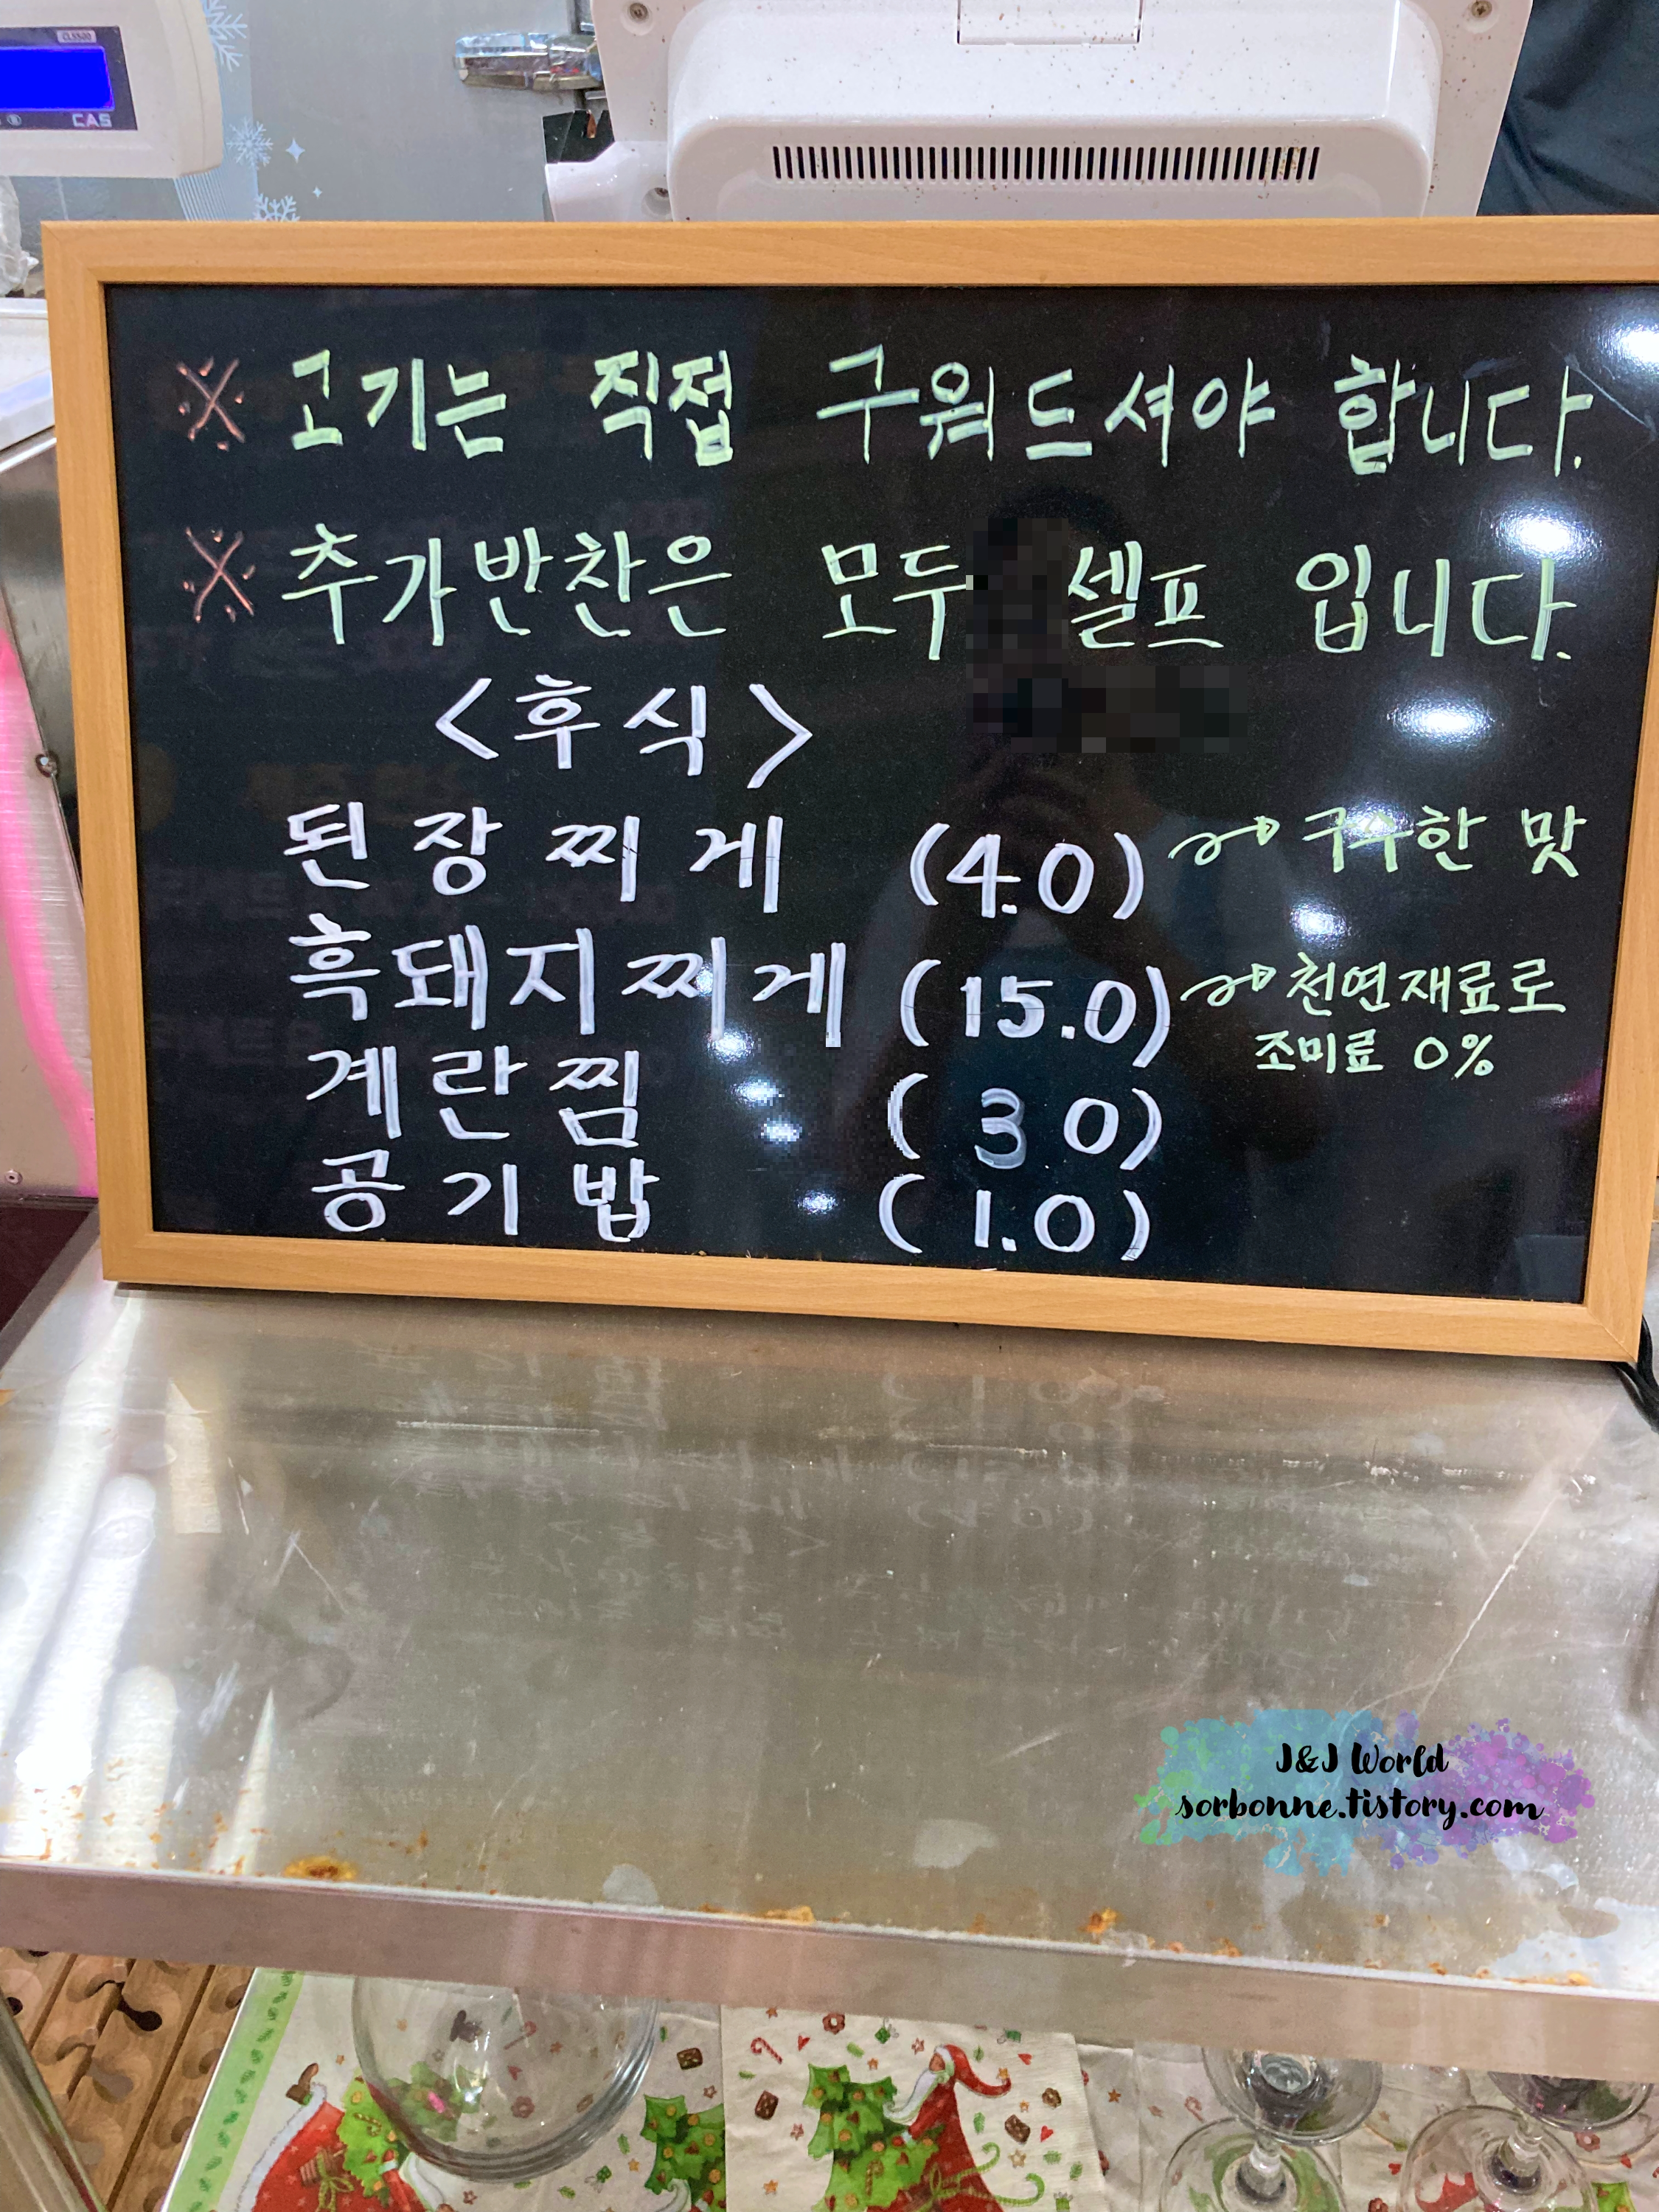 CL5500
CAS
※ 고기는 직접 구워드셔야 합니다.
※ 추가반찬은 모두 셀프 입니다.
<후식>
된장찌게 (4.0) 구수한 맛
흑돼지찌게 (15.0) 천연재료로
조미료 0%
계란찜 (3 0)
공기밥 (1.0)
J&J World
sorbonne.tistory.com